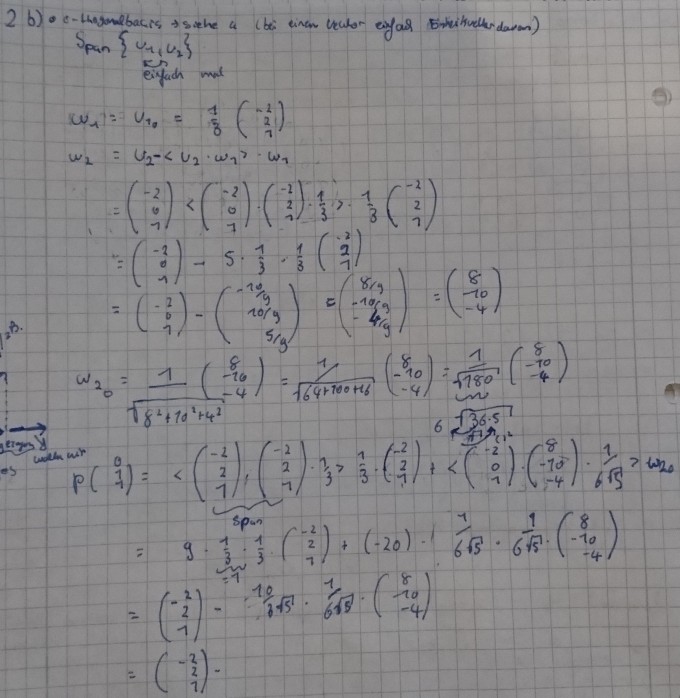 2 b) o c-thogonalbasis → siehe a (bei einem Vektor einfach Einheitvektor davon)
Span { v₁, v₂ }
einfach mal
w₁ = v₁₀ = 1/3 (-2 2 1)
w₂ = v₂ - < v₂ · w₁ > · w₁
= (-2 0 1) < (-2 0 1) · (-2 2 1) · 1/3 > · 1/3 (-2 2 1)
= (-2 0 1) - 5 · 1/3 · 1/3 (-2 2 1)
= (-2 0 1) - (-10/9 10/9 5/9) = (8/9 -10/9 -4/9) = (8 -10 -4)
w₂₀ = 1/√(8²+10²+4²) (8 -10 -4) = 1/√(64+100+16) (8 -10 -4) = 1/√180 (8 -10 -4)
6 √36·5
p (0 1 1) = < (-2 2 1), (-2 2 1) · 1/3 > 1/3 · (-2 2 1) + < (-2 0 1) · (8 -10 -4) · 1/6√5 > w₂₀
Span
= 9 · 1/3 · 1/3 · (-2 2 1) + (-20) · 1/6√5 · 1/6√5 · (8 -10 -4)
=1
= (-2 2 1) - 10/3√5 · 1/6√5 · (8 -10 -4)
= (-2 2 1) -